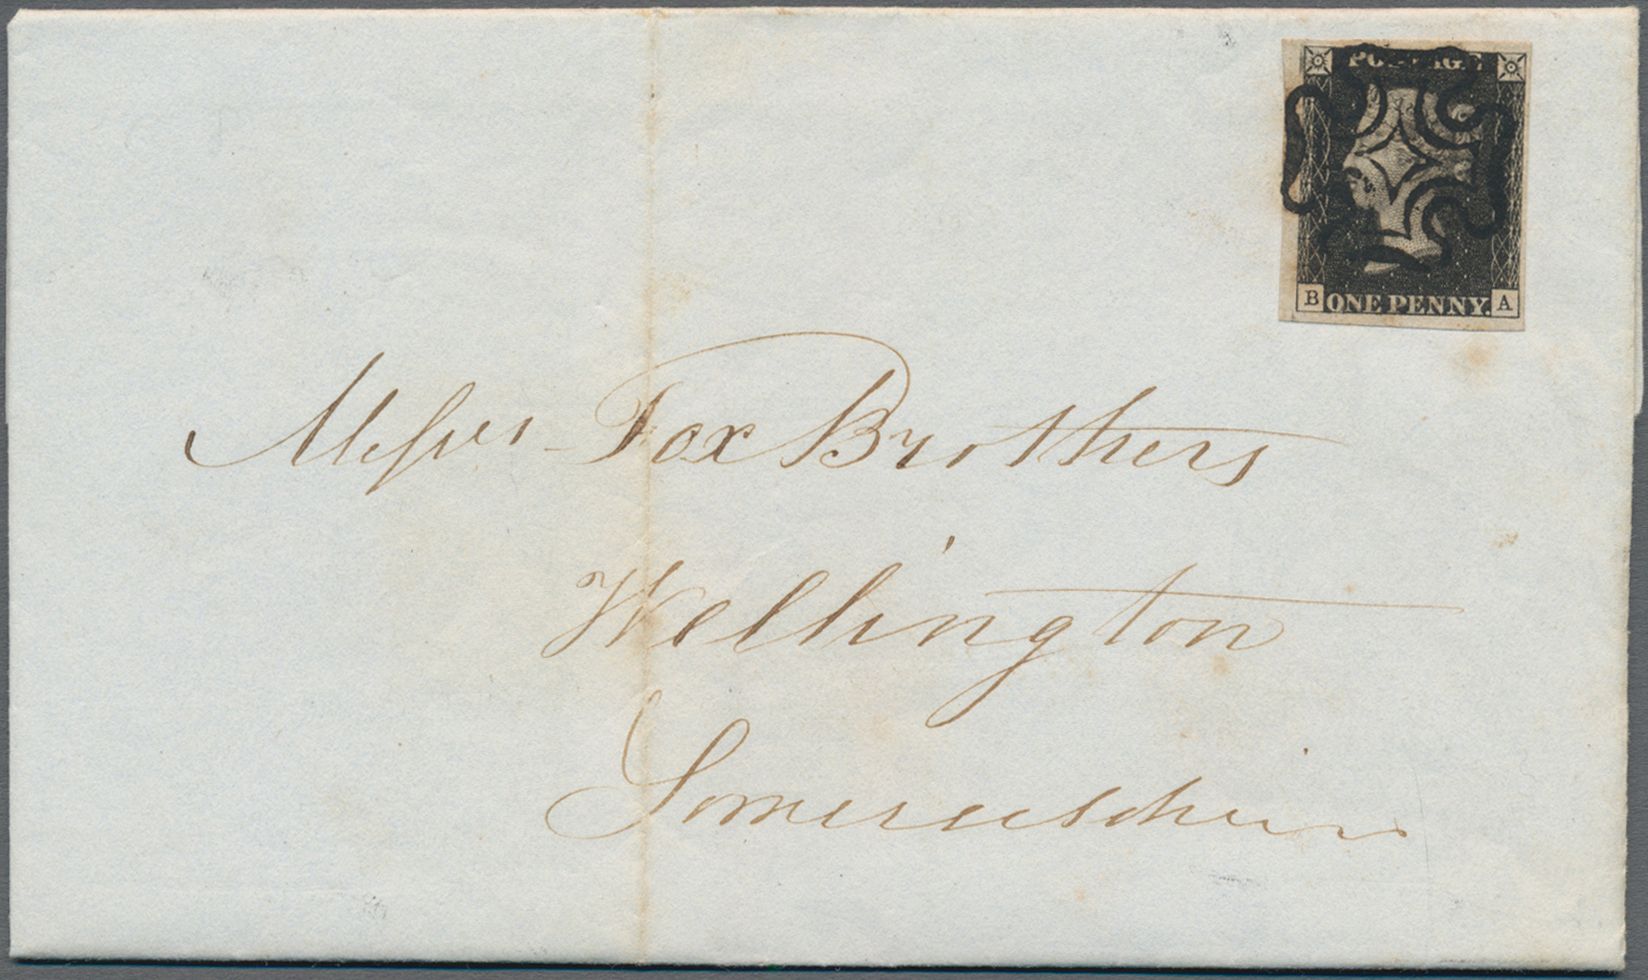 POSTAGE
B ONE PENNY. A
Messrs Fox Brothers
Wellington
Somersetshire